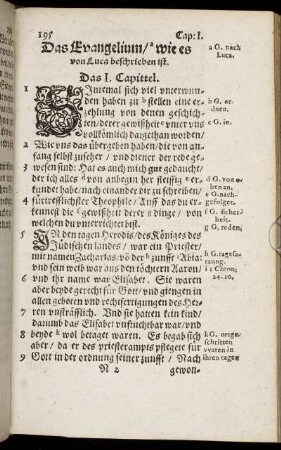 195 Cap: I.
Das Evangelium/ ᵃ wie es
von Luca beschrieben ist.
a G. nach
Luca.
Das I. Capittel.
1 SIntemal sich viel vnerwun-
den haben zu ᵇ stellen eine er-
zehlung von denen geschich-
ten/ derer ᶜ gewißheit vnter vns
vollkömlich dargethan worden/
b G. er-
dnen.
c G. in.
2 Wie vns das übergeben haben/ die von an-
fang selbst zuseher/ vnd diener der rede ge-
3 wesen sind: Hat es auch mich gut gedaucht/
der ich alles ᵈ von anbegin her fleissig ᵉ er-
kundet habe/ nach einander dir zu schreiben/
4 fürtrefflichster Theophile/ Auff das du er-
kennest die ᶠ gewißheit derer ᵍ dinge/ von
welchen du vnterrichtet bist.
d G. von o-
ben an.
e G. nach-
gefolget.
f G. sicher-
heit.
g G. reden.
5 IN den tagen Herodis/ des Königes des
Jüdischen landes/ war ein Priester/
mit namen Zacharias/ vō der ʰ zunfft ⁱ Abia:
und sein weib war aus den töchtern Aaron/
6 vnd ihr name war Elisabet. Sie waren
aber beyde gerecht für Gott/ vnd giengen in
allen geboten vnd rechtfertigungen des Her-
7 ren vnsträfflich. Vnd sie hatten kein kind/
darumb das Elisabet vnfruchtbar war/ vnd
8 beyde ᵏ wol betaget waren. Es begab sich
aber/ da er des priesterampts pflegete für
9 Gott in der ordnung seiner zunfft/ Nach
h G. tagefa-
i 1 Chron;
24.10.
k G. ortge-
schritten
vvaren in
ihren tagen
N 2 gewon-